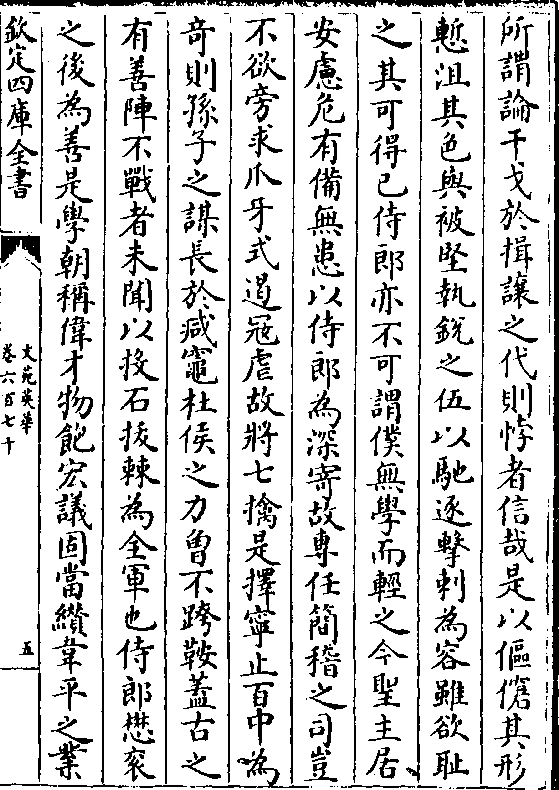 所謂論干戈於揖讓之代則悖者信哉是以傴僂其形
慙沮其色與被堅執銳之伍以馳逐擊刺為容雖欲恥
之其可得已侍郎亦不可謂僕無學而輕之今聖主居
安慮危有備無患以侍郎為深寄故專任簡稽之司豈
不欲旁求爪牙式遏寇虐故將七擒是擇寧止百中為
奇則孫子之謀長於減竈杜侯之力曾不跨鞍蓋古之
有善陣不戰者未聞以投石拔棘為全軍也侍郎懋衮
之後為善是學朝稱偉才物飽宏議固當纘韋平之業
欽定四庫全書
文苑英華
卷六百七十
五